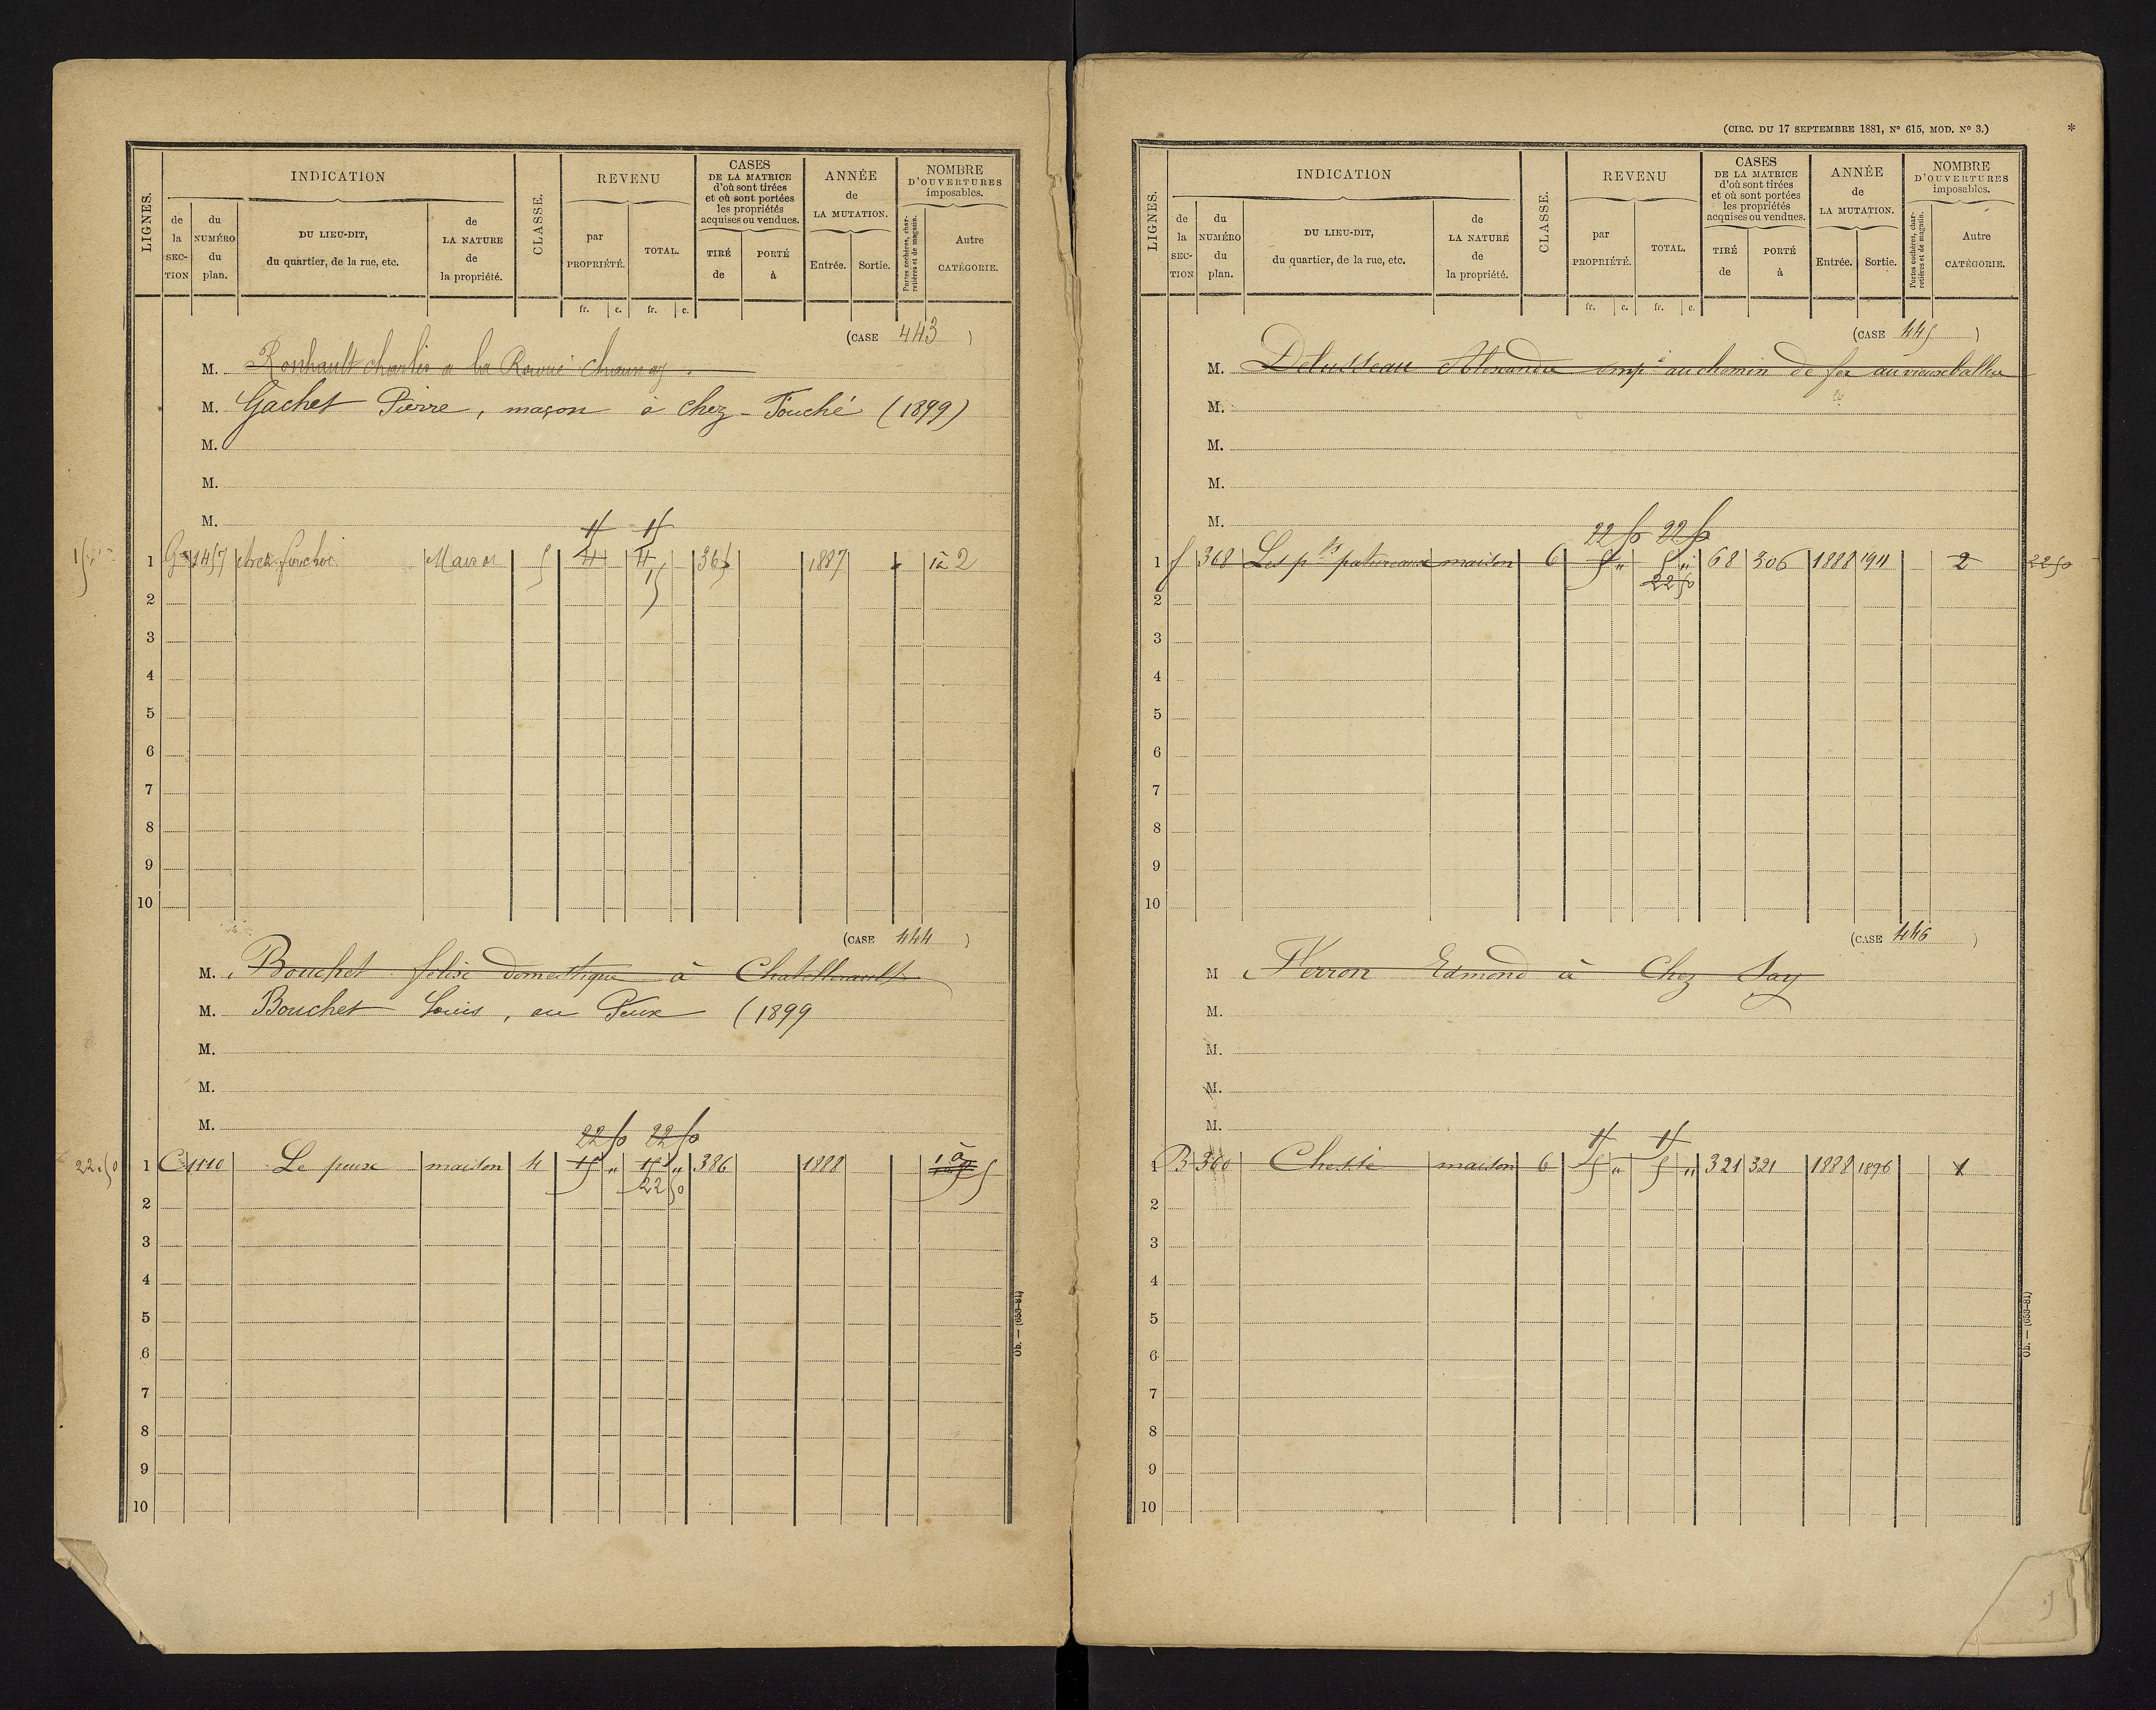 LIGNES.
INDICATION
de la SECTION
du NUMÉRO du plan.
DU LIEU-DIT, du quartier, de la rue, etc.
de LA NATURE de la propriété.
CLASSE.
REVENU
par PROPRIÉTÉ.
TOTAL.
fr. c. fr. c.
CASES DE LA MATRICE d'où sont tirées et où sont portées les propriétés acquises ou vendues.
TIRÉ de
PORTÉ à
ANNÉE de LA MUTATION.
Entrée. Sortie.
NOMBRE D'OUVERTURES imposables.
Portes cochères, charretières et de magasin.
Autre CATÉGORIE.
(CASE 443 )
M. charles a la
M. Gachet Pierre, maçon à chez-Fouché (1899)
M.
M.
M.
15 15
1 G 1457 chez Maison 5 4 4 365 1887 1 à 2
15
2
3
4
5
6
7
8
9
10
(CASE 444 )
M. Bouchet domestique à Chatellerault
M. Bouchet Louis, au Peux (1899
M.
M.
M.
22 50 22 50
22.50 1 C 1110 Le peux maison 4 15 " 15 " 386 1888 1 à 5
22 50
2
3
4
5
6
7
8
9
10
Ob. — (653-81)
(CIRC. DU 17 SEPTEMBRE 1881, N° 615, MOD. N° 3.) *
LIGNES.
INDICATION
de la SECTION
du NUMÉRO du plan.
DU LIEU-DIT, du quartier, de la rue, etc.
de LA NATURE de la propriété.
CLASSE.
REVENU
par PROPRIÉTÉ.
TOTAL.
fr. c. fr. c.
CASES DE LA MATRICE d'où sont tirées et où sont portées les propriétés acquises ou vendues.
TIRÉ de
PORTÉ à
ANNÉE de LA MUTATION.
Entrée. Sortie.
NOMBRE D'OUVERTURES imposables.
Portes cochères, charretières et de magasin.
Autre CATÉGORIE.
(CASE 445 )
M. Delusseau Alexandre emp é au chemin de fer au vieux
M.
M.
M.
M.
22 50 22 50
1 f 368 Les p ts patureaux maison 6 5 " 5 " 68 306 1888 1911 2 22 50
22 50
2
3
4
5
6
7
8
9
10
(CASE 446 )
M Edmond à Chez Jay
M.
M.
M.
M.
1 B 360 maison 6 5 " 5 " 321 321 1888 1896 1
2
3
4
5
6
7
8
9
10
Ob. — (653-81)